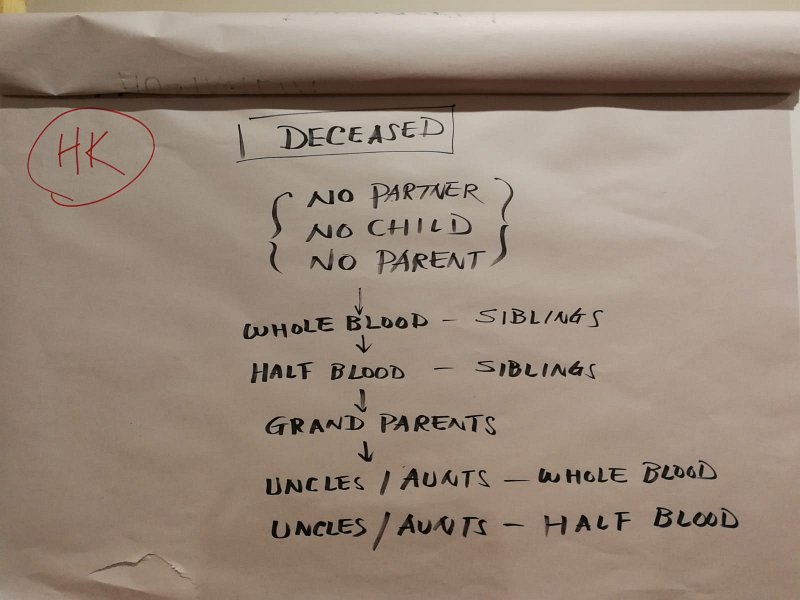 HK
DECEASED
NO PARTNER
NO CHILD
NO PARENT
WHOLE BLOOD - SIBLINGS
HALF BLOOD - SIBLINGS
GRAND PARENTS
UNCLES / AUNTS - WHOLE BLOOD
UNCLES / AUNTS - HALF BLOOD